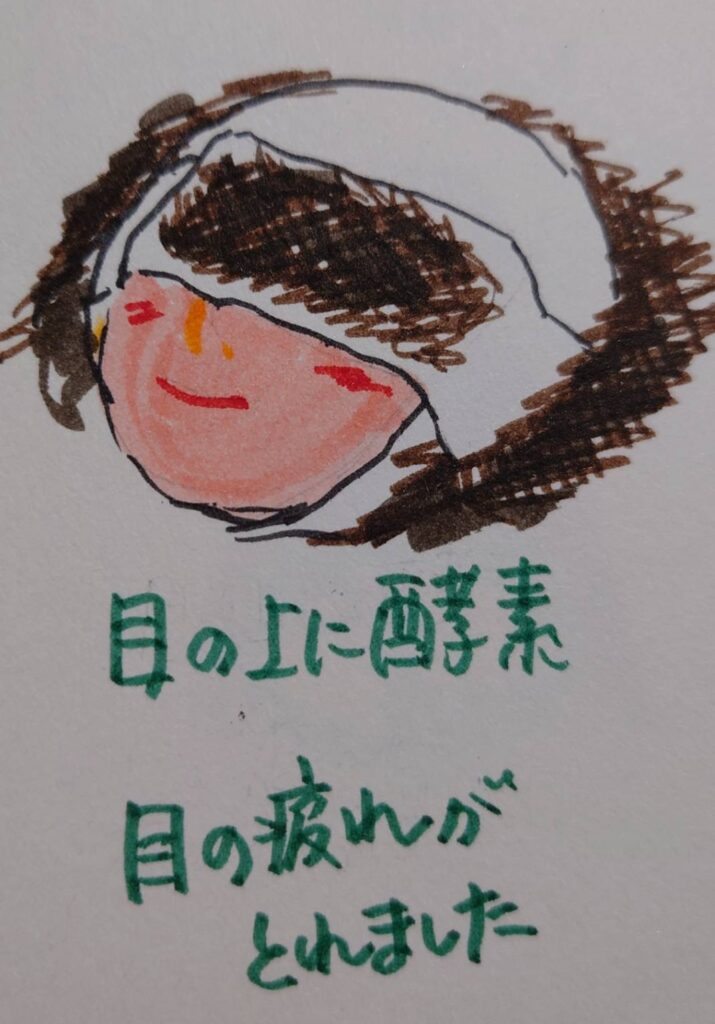 目の上に酵素
目の疲れが
とれました